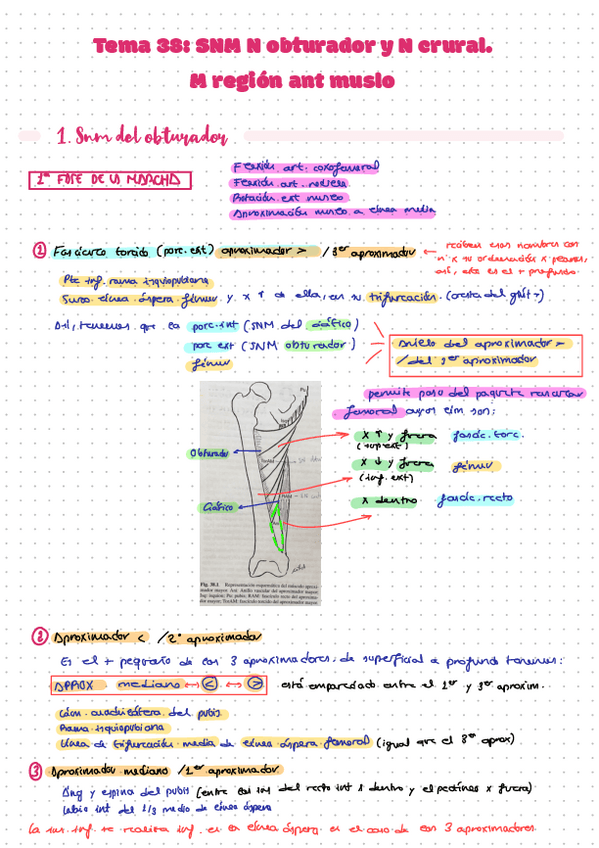 Tema 38: SNM N obturador y N crural.
M región ant muslo
1. Snm del obturador
1ª FASE DE LA MARCHA
Flexión art. coxofemoral
Flexión art. rodilla
Rotación ext muslo
Aproximación muslo a línea media
① Fascículo torcido (porc. ext) aproximador > / 3er aproximador ← reciben esos nombres con
nº x su ordenación x planos,
así, este es el + profundo.
Pte inf. rama isquiopubiana
Surco línea áspera fémur y x ↑ de ella, en su trifurcación. (cresta del glút >)
Así, tenemos que la porc. int (SNM del ciático)
porc ext (SNM obturador)
fémur
anillo del aproximador >
/ del 3er aproximador
permite paso del paquete vascular
femoral cuyos lím son:
x ↑ y fuera fascíc. torc.
(sup ext)
x ↓ y fuera fémur
(inf. ext)
x dentro fascíc. recto
Obturador
Ciático
Fig. 38.1 Representación esquemática del músculo aproximador mayor.
② Aproximador < / 2º aproximador
Es el + pequeño de los 3 aproximadores, de superficial a profundo tenemos:
APROX mediano ↔ < ↔ > está emparedado entre el 1er y 3er aproxim.
Lám. cuadrilátera del pubis
Rama isquiopubiana
Línea de trifurcación media de línea áspera femoral (igual que el 3er aprox)
③ Aproximador mediano / 1er aproximador
Áng y espina del pubis (entre las inn del recto int x dentro y el pectíneo x fuera)
Labio int del 1/3 medio de línea áspera
La ins. inf. se realiza inf. en la línea áspera en el caso de los 3 aproximadores